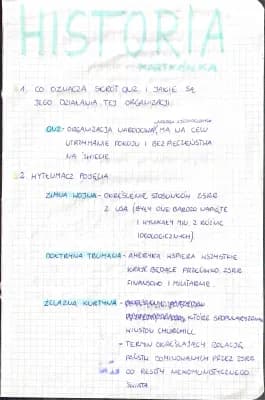 HISTORIA
KARTKÓWKA
1. CO OZNACZA SKRÓT ONZ I JAKIE SĄ
JEGO DZIAŁANIA TEJ ORGANIZACJI.
ONZ - ORGANIZACJA NARODÓW ZJEDNOCZONYCH, MA NA CELU
UTRZYMANIE POKOJU I BEZPIECZEŃSTWA
NA ŚWIECIE
2. WYTŁUMACZ POJĘCIA
ZIMNA WOJNA - OKREŚLENIE STOSUNKÓW ZSRR
Z USA (BYŁY ONE BARDZO NAPIĘTE
I WYNIKAŁY M.IN. Z RÓŻNIC
IDEOLOGICZNYCH)
DOKTRYNA TRUMANA - AMERYKA WSPIERA WSZYSTKIE
KRAJE BĘDĄCE PRZECIWKO ZSRR
FINANSOWO I MILITARNIE.
ŻELAZNA KURTYNA -
KTÓRE SPOPULARYZOWAŁ
WINSTON CHURCHILL
- TERMIN OKREŚLAJĄCY IZOLACJĘ
PAŃSTW DOMINOWANYCH PRZEZ ZSRR
OD RESZTY NIEKOMUNISTYCZNEGO
ŚWIATA